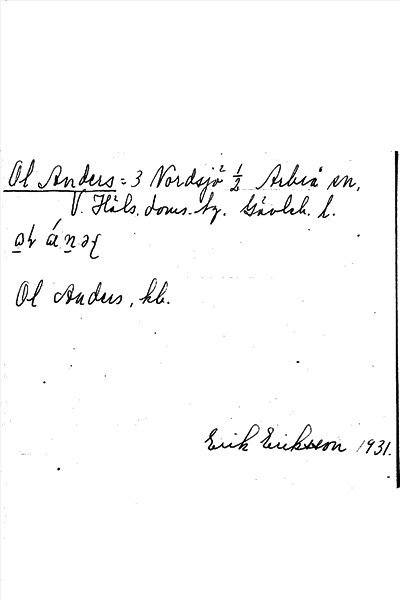 Ol Anders = 3 Nordsjö² ½ Arbrå sn,
V. Häls. doms. hg. Gävleb. l.
Ol Anders, kb.
Erik Eriksson 1931.